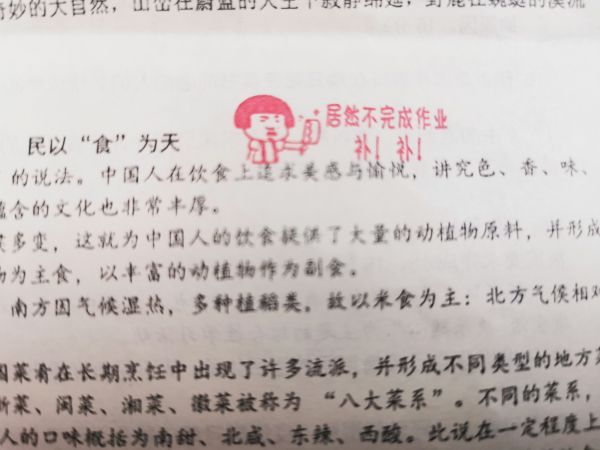 奇妙的大自然，山峦在蔚蓝的天空下寂静绵延，野鹿在蜿蜒的溪流
居然不完成作业
补！补！
民以“食”为天
的说法。中国人在饮食上追求美感与愉悦，讲究色、香、味、
蕴含的文化也非常丰厚。
多变，这就为中国人的饮食提供了大量的动植物原料，并形成
物为主食，以丰富的动植物作为副食。
南方因气候湿热，多种植稻类，故以米食为主；北方气候相对
国菜肴在长期烹饪中出现了许多流派，并形成不同类型的地方菜
浙菜、闽菜、湘菜、徽菜被称为“八大菜系”。不同的菜系，
人的口味概括为南甜、北咸、东辣、西酸。此说在一定程度上